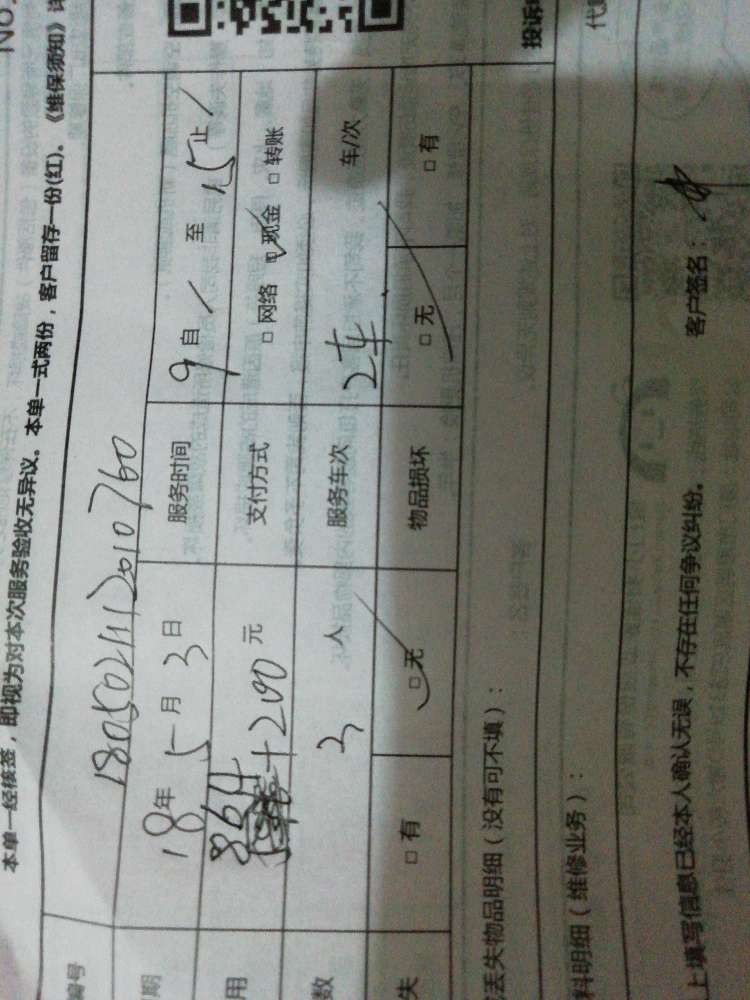 No.
本单一经核签，即视为对本次服务验收无异议。本单一式两份，客户留存一份(红)。《维保须知》详
编号
期 18年5月3日 服务时间 9自/至15止/
用 864 +200元 支付方式 □网络 □现金 □转账
数 3人 服务车次 2车 车/次
失 □有 □无 物品损坏 □无 □有
丢失物品明细（没有可不填）： 投诉
料明细（维修业务）： 代
上填写信息已经本人确认无误，不存在任何争议纠纷。 客户签名：